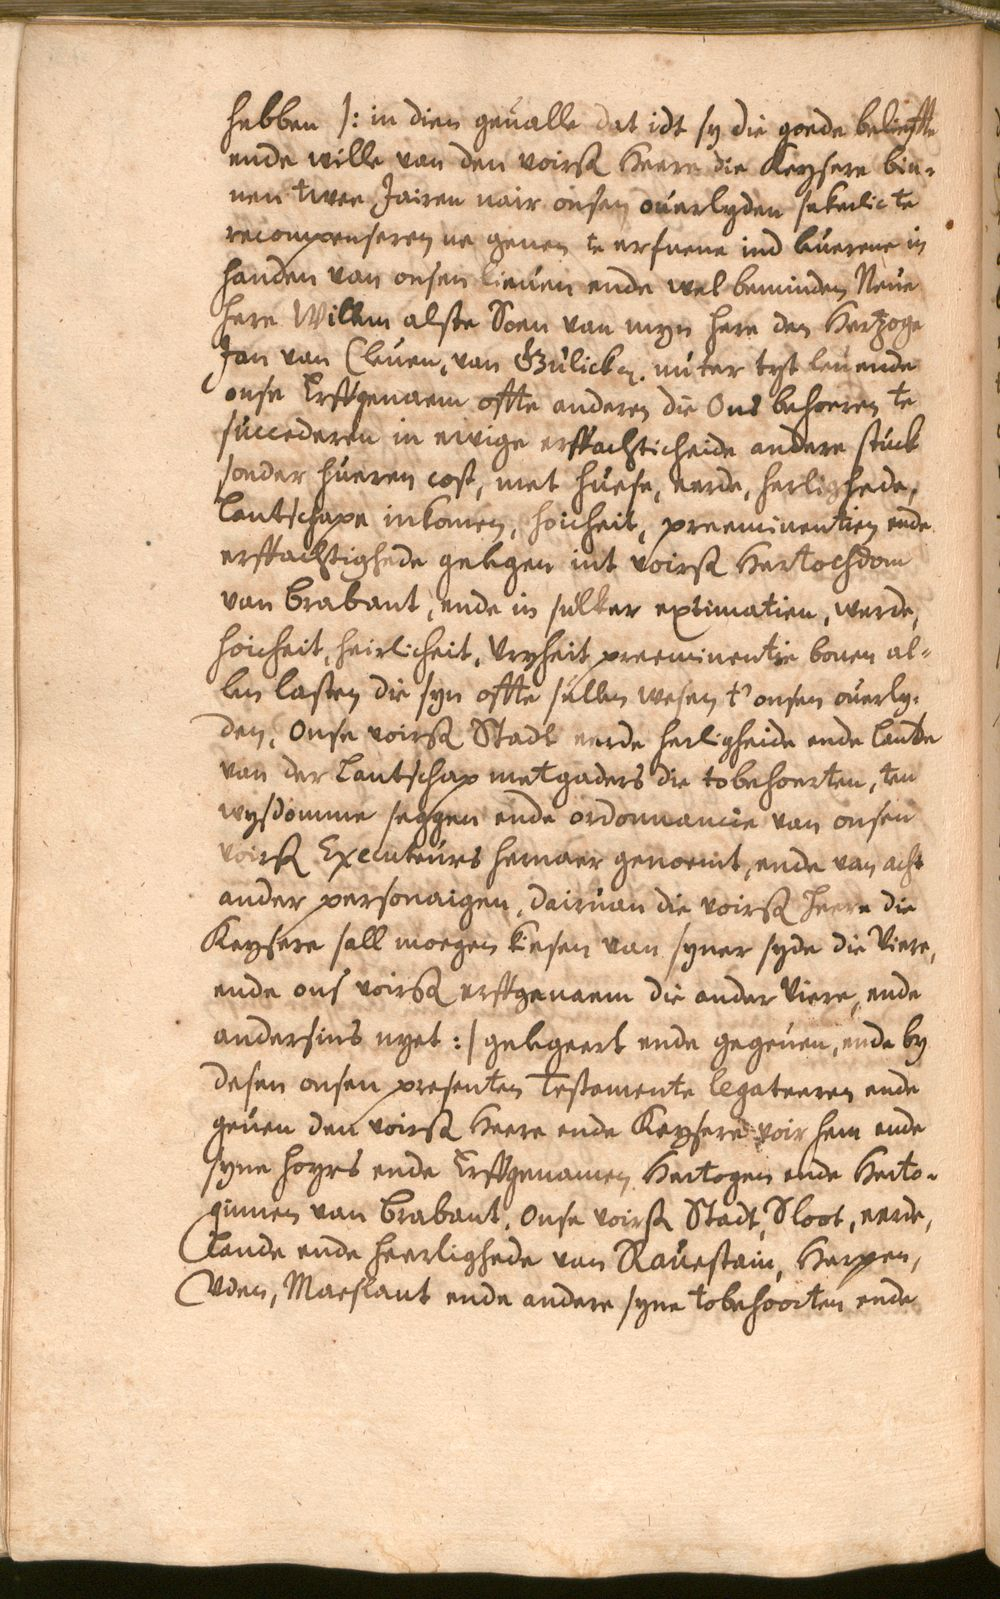 hebben /: in dien geualle dat idt sy die goede belieffte
ende wille van den voirß Heere die Keysere bin=
nen twee Jairen nair onsen ouerlyden sekerlic te
recompenseren ne genen te erfuene ind leuerene in
handen van onsen lieuen ende wel beminden Neue
here Willem alste Soen van myn here den Hertzoge
Jan van Cleuen, van Gulick &. nu ter tyt leuende
onse Erffgenaem offte anderen die Ons behoeren te
succederen in ewige erffachticheide andere stuck
sonder hueren cost, met huese, eerde, herlighede,
Lantschape inkomen, hoicheit, preeminentien ende
erffachtighede gelegen int voirß Hertochdom
van Brabant, ende in sulker extimatien, werde,
hoicheit, heirlicheit, Vryheit preeminentie bouen al=
len lasten die syn offte sullen wesen t' onsen ouerly=
den, Onse voirß Stadt eerde herligheide ende Lande
van der Lantschap metgaders die tobehoerten, ten
wysdomme seggen ende ordonnancie van onsen
voirß Executeurs hernaer genoemt, ende van acht
ander personaigen, dairuan die voirß Heere die
Keysere sall moegen kiesen van syner syde die Viere,
ende ons voirß erffgenaem die ander Viere, ende
andersins nyet :/ gelegeert ende gegeuen, ende by
desen onsen presenten Testamente legateeren ende
geuen den voirß Heere ende Keysere voir hem ende
syne hoyrs ende Erffgenamen Hertogen ende Herto=
ginnen van Brabant, Onse voirß Stadt, Sloot, eerde,
Lande ende heerlighede van Rauestain, Herpen,
Vden, Maeslant ende andere syne tobehoorten ende